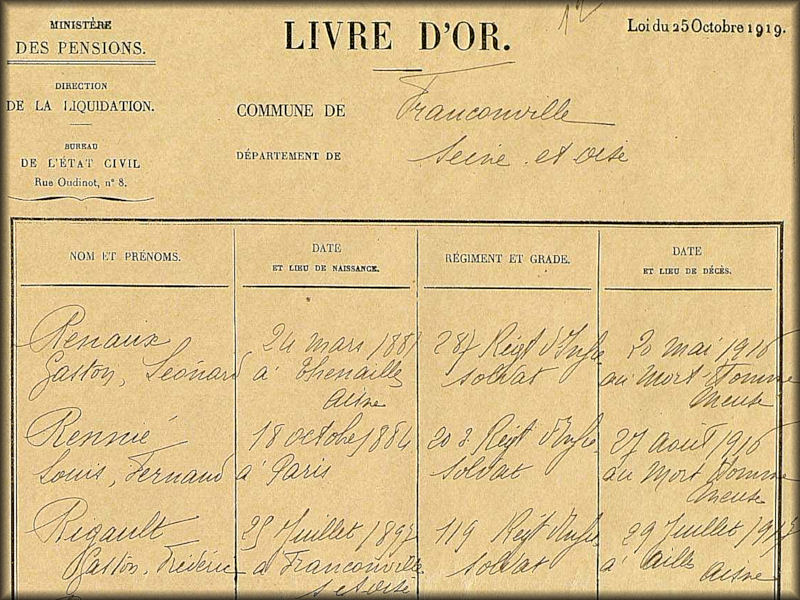 MINISTÈRE
DES PENSIONS.
DIRECTION
DE LA LIQUIDATION.
BUREAU
DE L'ÉTAT CIVIL
Rue Oudinot, n° 8.
LIVRE D'OR.
Loi du 25 Octobre 1919.
COMMUNE DE Franconville
DÉPARTEMENT DE Seine et oise
NOM ET PRÉNOMS.
DATE
ET LIEU DE NAISSANCE.
RÉGIMENT ET GRADE.
DATE
ET LIEU DE DÉCÈS.
Renaux
Gaston, Léonard
24 mars
à Thenailles
Aisne
287 Régt d'Infie
soldat
20 mai 1916
au Mort Homme
Meuse
Rennié
Louis, Fernand
18 octobre 1884
à Paris
Régt d'Infie
soldat
27 août 1916
au Mort Homme
Meuse
Rigault
Gaston, Frédéric
25 Juillet
à Franconville
s et oise
119 Régt d'Infie
soldat
29 Juillet
à Ailles
Aisne